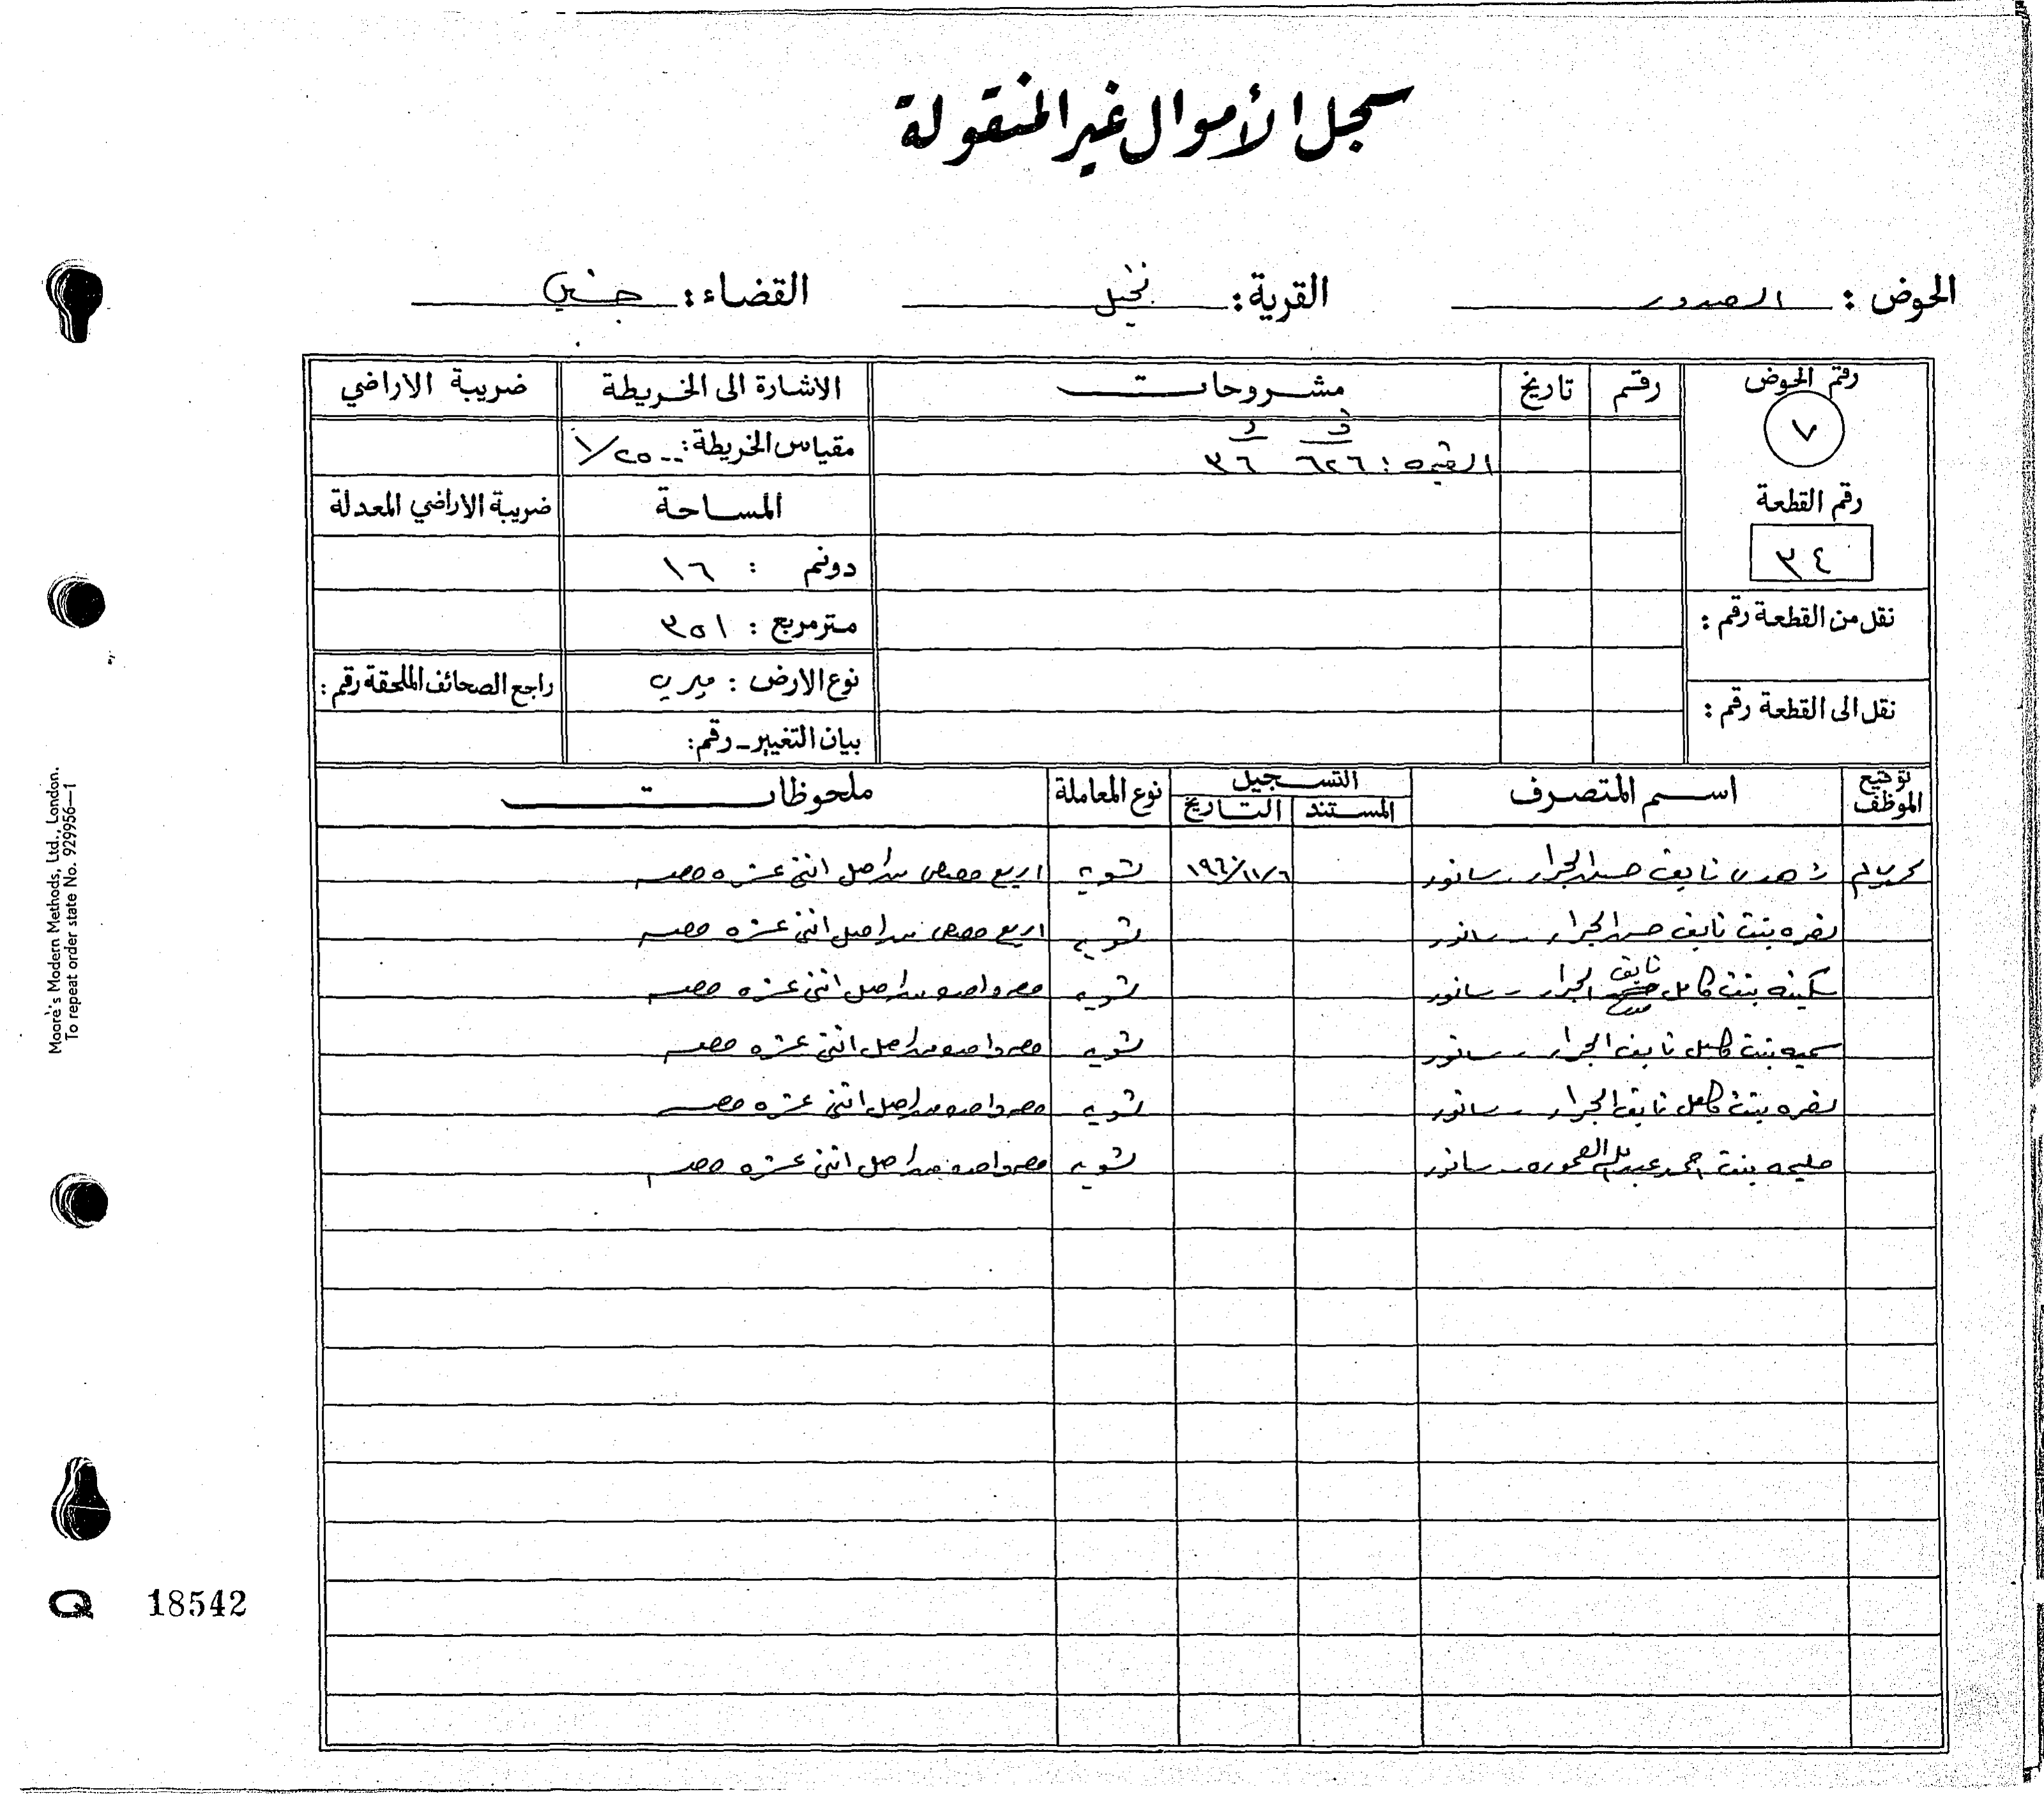 سجل الأموال غير المنقولة
الحوض : الصدور القرية : نخيل القضاء : جنين
رقم الحوض رقم تاريخ مشروحات الاشارة الى الخريطة ضريبة الاراضي
٧
ف د
القيمه : ٦٢٦ ٣٦
مقياس الخريطة : ١/٢٥٠٠
رقم القطعة المساحة ضريبة الاراضي المعدلة
٣٤ دونم : ١٦
نقل من القطعة رقم : متر مربع : ٣٥١
نوع الارض : ميري راجع الصحائف الملحقة رقم :
نقل الى القطعة رقم : بيان التغيير - رقم :
توقيع الموظف اسم المتصرف التسجيل نوع المعاملة ملحوظات
المستند التاريخ
زهدي نايف حسن الجرار - سانور ١٩٦٠/١١/٦ تسويه اربع حصص من اصل اثني عشره حصه
نصره بنت نايف حسن الجرار - سانور تسويه اربع حصص من اصل اثني عشره حصه
سكينه بنت كامل نايف الجرار - سانور تسويه حصه واحده من اصل اثني عشره حصه
سميه بنت كامل نايف الجرار - سانور تسويه حصه واحده من اصل اثني عشره حصه
نصره بنت كامل نايف الجرار - سانور تسويه حصه واحده من اصل اثني عشره حصه
مليحه بنت احمد عبد - سانور تسويه حصه واحده من اصل اثني عشره حصه
Moore's Modern Methods, Ltd., London.
To repeat order state No. 929956—1
Q 18542